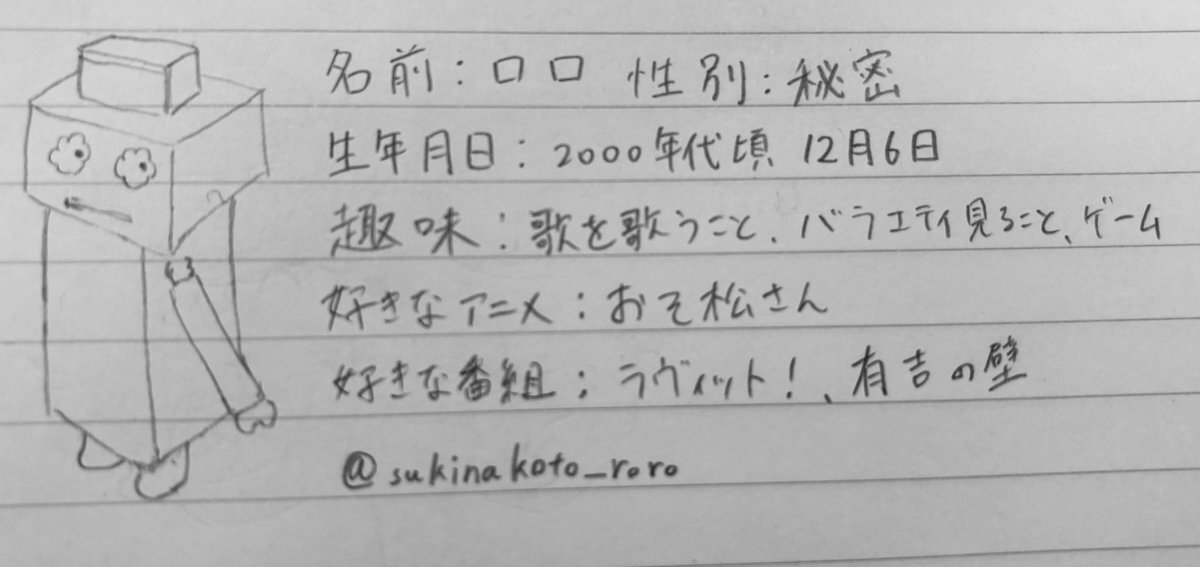 名前:ロロ 性別:秘密
生年月日:2000年代頃 12月6日
趣味:歌を歌うこと、バラエティ見ること、ゲーム
好きなアニメ:おそ松さん
好きな番組:ラヴィット!、有吉の壁
@sukinakoto_roro